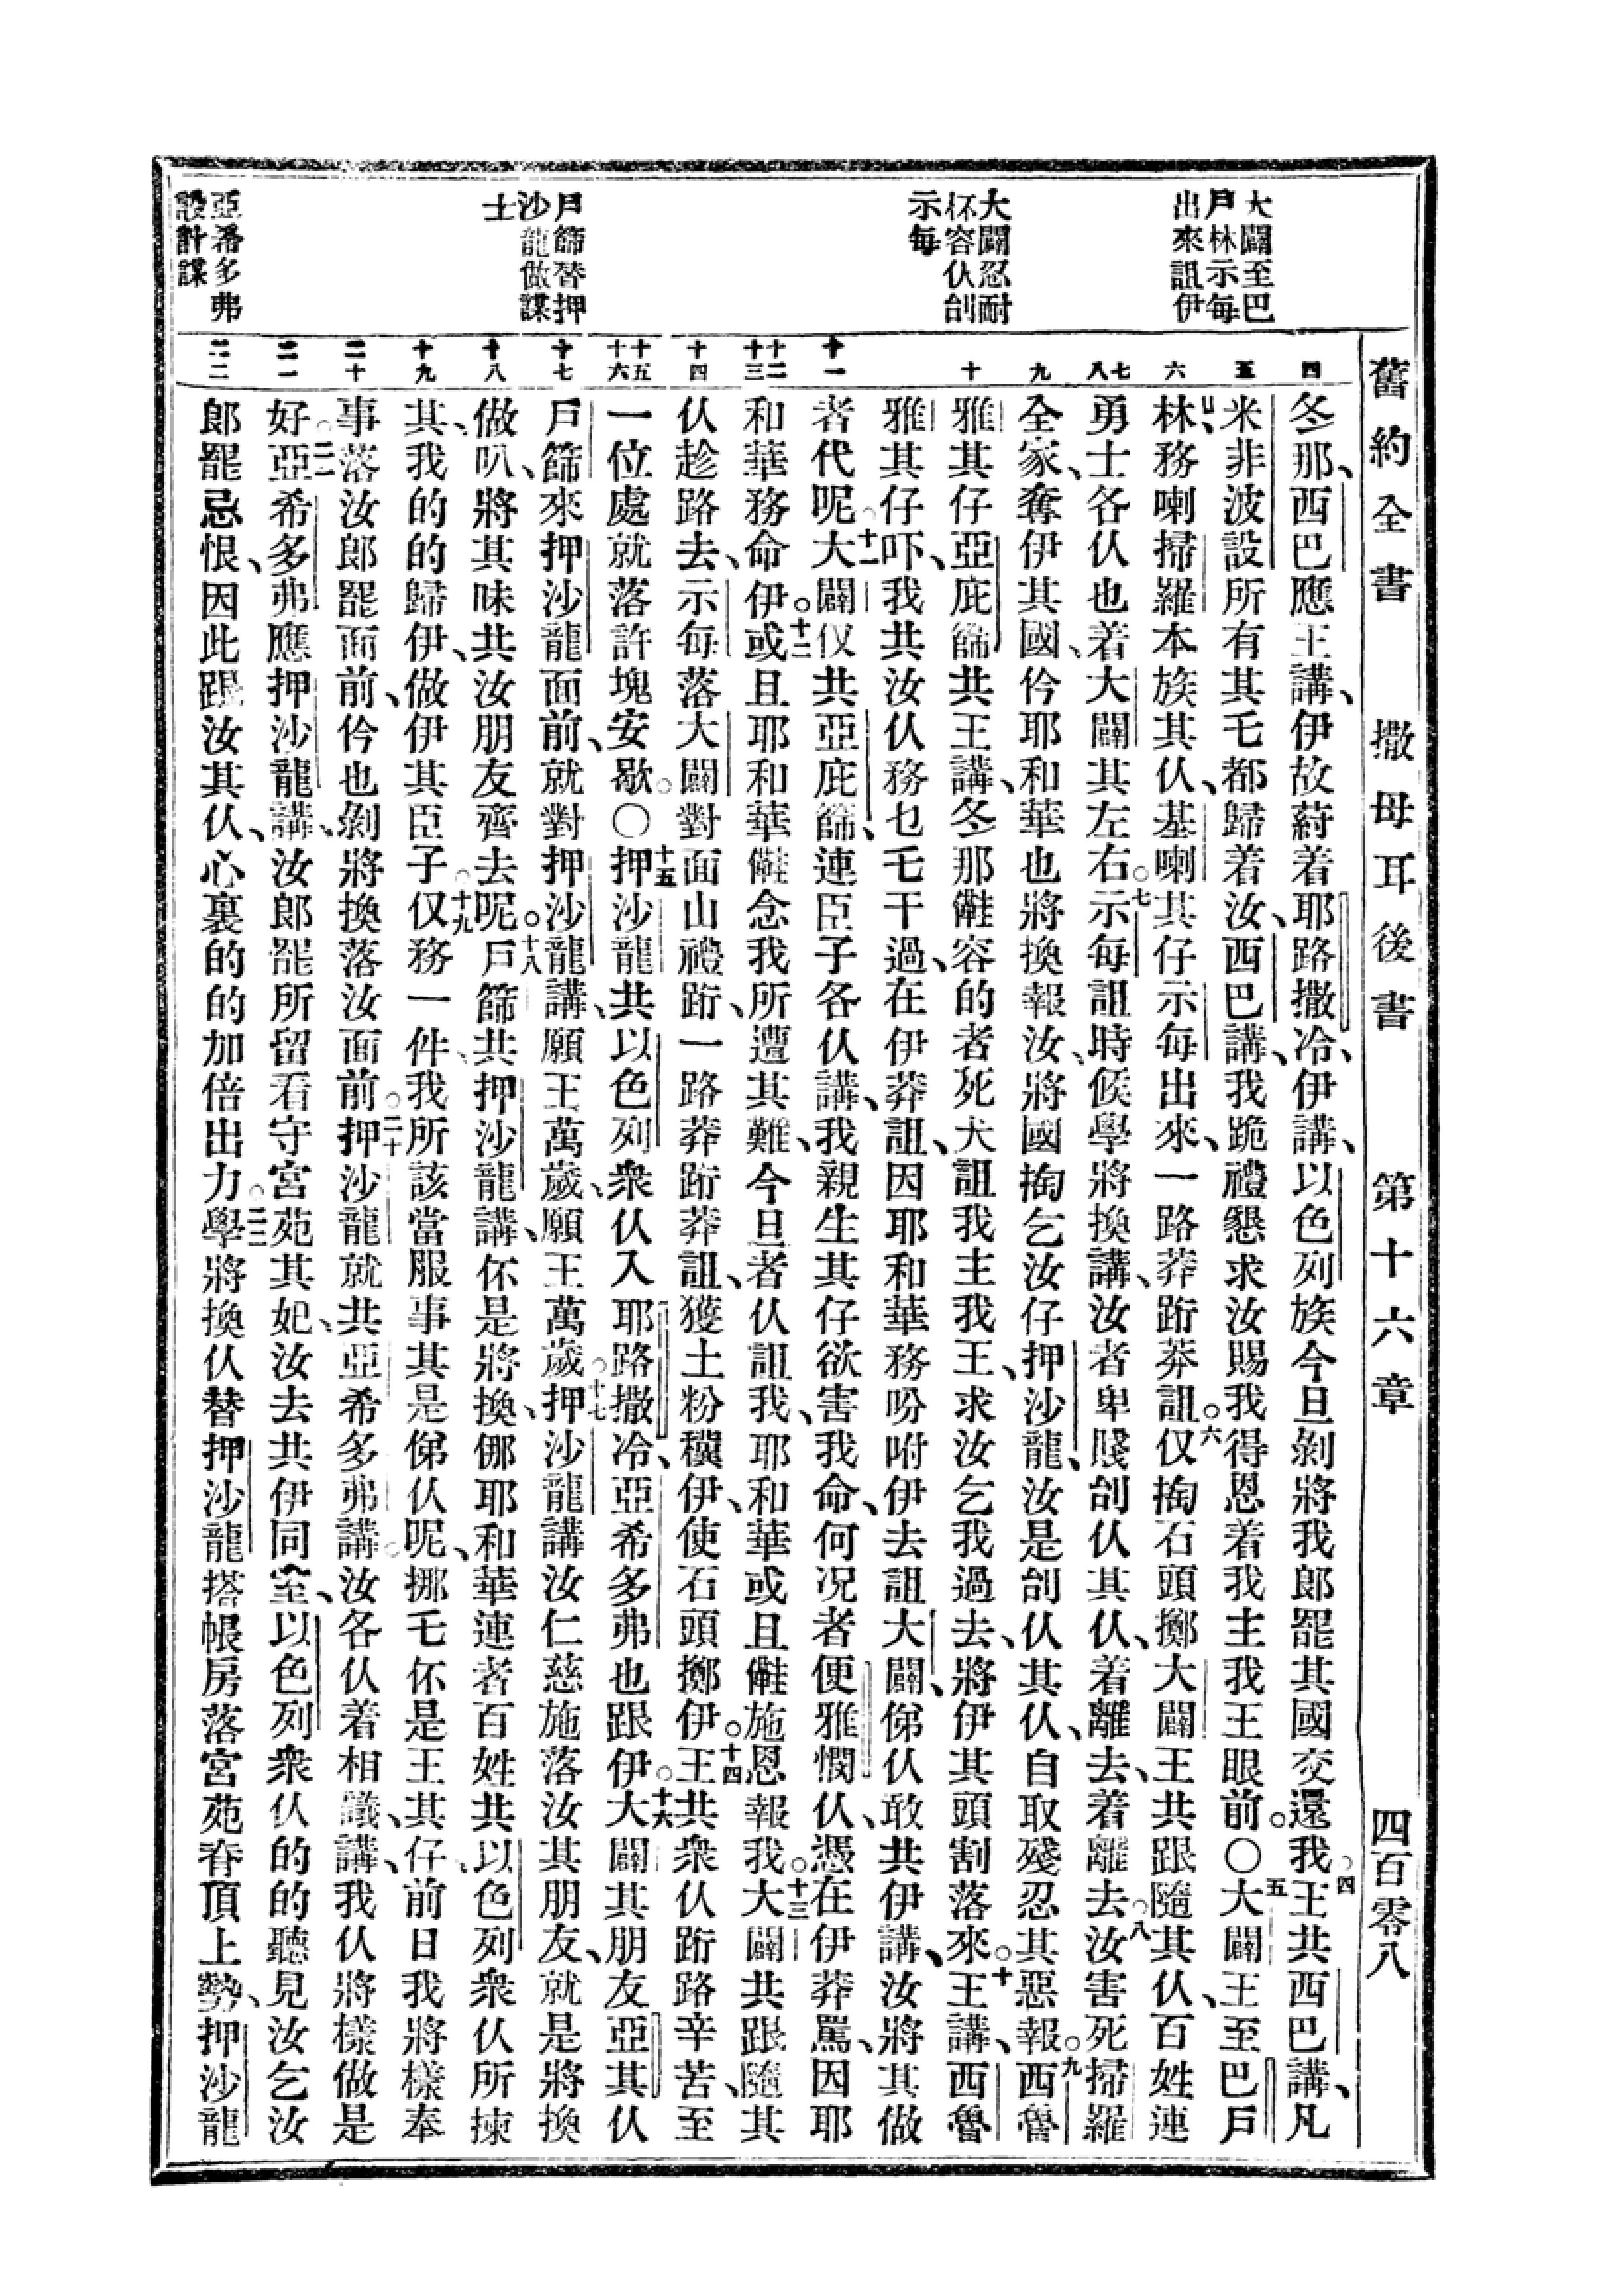 舊約全書 撒母耳後書 第十六章 四百零八
大闢至巴
戶林示每
出來詛伊
大闢忍耐
伓容仈刣
示每
戶篩替押
沙龍做謀
士
亞希多弗
設計謀
四 五 六 七 八 九 十 十一 十二 十三 十四 十五 十六 十七 十八 十九 二十 二一 二二
冬那、西巴應王講、伊故蒔着耶路撒冷、伊講、以色列族今旦剝將我郎罷其國交還我。四王共西巴講、凡
米非波設所有其乇都歸着汝、西巴講、我跪禮懇求汝賜我得恩着我主我王眼前。〇五大闢王至巴戶
林、務喇掃羅本族其仈、基喇其仔示每出來、一路莽跲莽詛。六仅掏石頭擲大闢王共跟隨其仈、百姓連
勇士各仈也着大闢其左右。七示每詛時候學將換講、汝者卑賤刣仈其仈、着離去、着離去。八汝害死掃羅
全家、奪伊其國、仱耶和華也將換報汝、將國掏乞汝仔押沙龍、汝是刣仈其仈、自取殘忍其惡報。九西魯
雅其仔亞庇篩共王講、冬那𣍐容的者死犬詛我主我王、求汝乞我過去、將伊其頭割落來。十王講、西魯
雅其仔吓、我共汝仈務乜乇干過、在伊莽詛、因耶和華務吩咐伊去詛大闢、俤仈敢共伊講、汝將其做
者代呢。十一大闢仅共亞庇篩、連臣子各仈講、我親生其仔欲害我命、何況者便雅憫仈、憑在伊莽駡、因耶
和華務命伊。十二或且耶和華𣍐念我所遭其難、今旦者仈詛我、耶和華或且𣍐施恩報我。十三大闢共跟隨其
仈趁路去、示每落大闢對面山禮跲、一路莽跲莽詛、獲土粉穤伊、使石頭擲伊。十四王共衆仈跲路辛苦、至
一位處就落許塊安歇。〇十五押沙龍共以色列衆仈入耶路撒冷、亞希多弗也跟伊。十六大闢其朋友亞其仈
戶篩來押沙龍面前、就對押沙龍講、願王萬歲、願王萬歲。十七押沙龍講汝仁慈施落汝其朋友、就是將換
做叭、將其味共汝朋友齊去呢。十八戶篩共押沙龍講、伓是將換、㑚耶和華連者百姓共以色列衆仈所揀
其、我的的歸伊、做伊其臣子。十九仅務一件、我所該當服事其是俤仈呢、挪乇伓是王其仔、前日我將樣奉
事落汝郎罷面前、仱也剝將換落汝面前。二十押沙龍就共亞希多弗講。汝各仈着相議、講、我仈將樣做是
好。二一亞希多弗應押沙龍講、汝郎罷所留看守宮苑其妃、汝去共伊同室、以色列衆仈的的聽見汝乞汝
郎罷忌恨、因此跟汝其仈、心裏的的加倍出力。二二學將換仈替押沙龍搭帳房落宮苑脊頂上勢、押沙龍